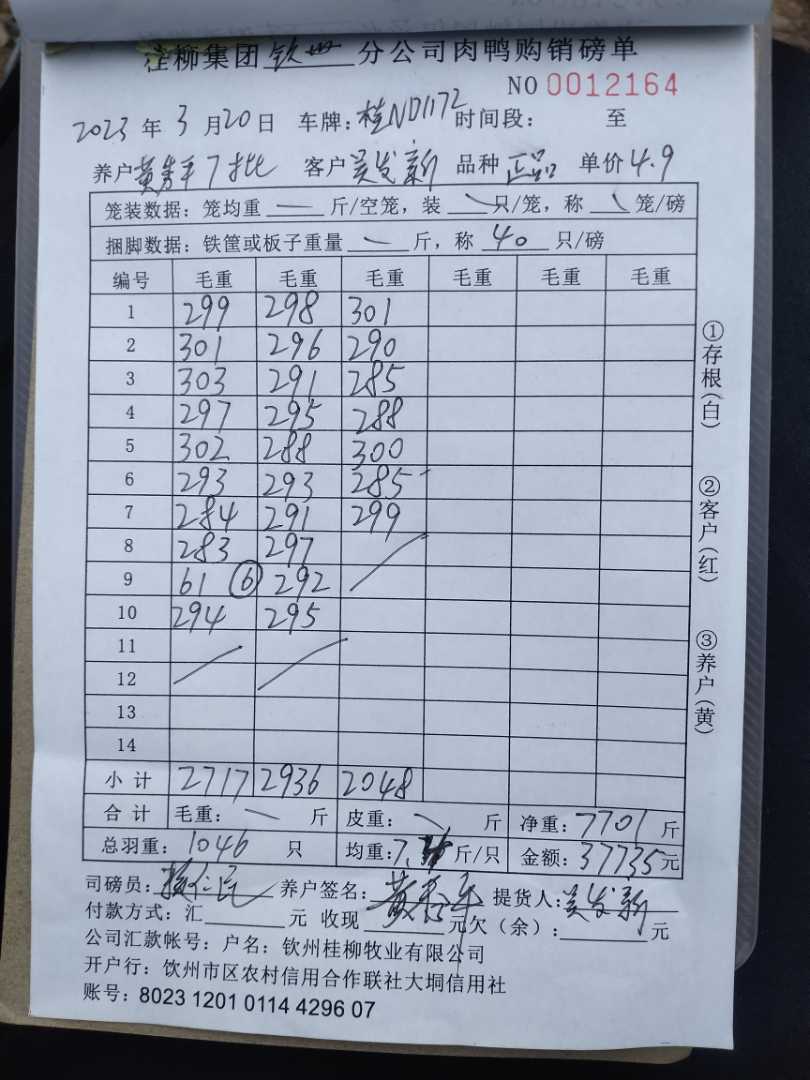 桂柳集团 钦州 分公司肉鸭购销磅单
NO 0012164
2023 年 3 月 20 日 车牌: 桂ND1172 时间段: 至
养户 黄 7批 客户 吴发新 品种 正品 单价 4.9
笼装数据: 笼均重 — 斤/空笼, 装 \ 只/笼, 称 \ 笼/磅
捆脚数据: 铁筐或板子重量 — 斤, 称 40 只/磅
编号 毛重 毛重 毛重 毛重 毛重 毛重
1 299 298 301
2 301 296 290
3 303 291 285
4 297 295 288
5 302 288 300
6 293 293 285
7 284 291 299
8 283 297
9 61 ⑥ 292
10 294 295
11
12
13
14
小计 2717 2936 2048
合计 毛重: — 斤 皮重: \ 斤 净重: 7701 斤
总羽重: 1046 只 均重: 7. 斤/只 金额: 37735 元
司磅员: 养户签名: 黄 提货人: 吴发新
付款方式: 汇 元 收现 元欠(余): 元
公司汇款帐号: 户名: 钦州桂柳牧业有限公司
开户行: 饮州市区农村信用合作联社大垌信用社
账号: 8023 1201 0114 4296 07
①存根(白)
②客户(红)
③养户(黄)